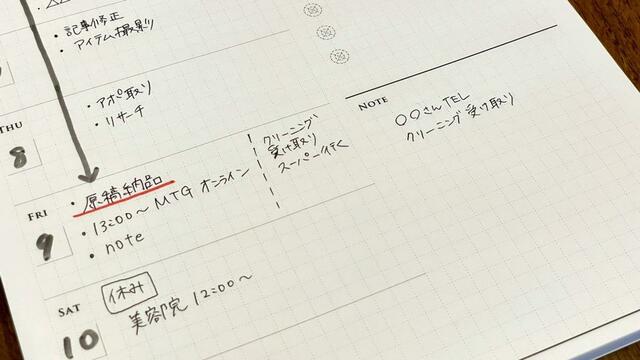 ・記事修正
・アイテム撮影
・アポ取り
・リサーチ
THU
8
FRI
9
・原稿納品
・13:00〜 MTG オンライン
・note
クリーニング
受け取り
スーパー行く
SAT
10
休み
美容院 12:00〜
NOTE
〇〇さんTEL
クリーニング受け取り